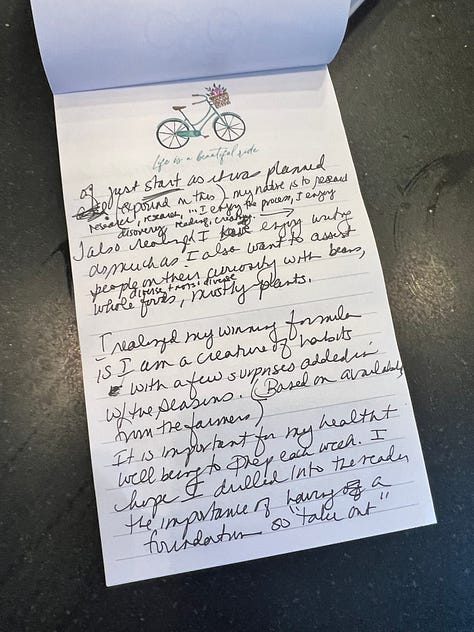 Life is a beautiful ride
Just start as it was planned
(expound on this) my nature is to research
research, research, ... I enjoy the process, I enjoy
discovery reading, creating.
I also realized I enjoy writing
as much as I also want to assist
people on their curiosity with beans,
diverse + more diverse
whole foods, mostly plants.
I realized my winning formula
is I am a creature of habits
with a few surprises added in
w/the seasons. (Based on availability
from the farmers)
It is important for my health +
well being to prep each week. I
hope I drilled into the reader
the importance of having a
foundation so "take out"